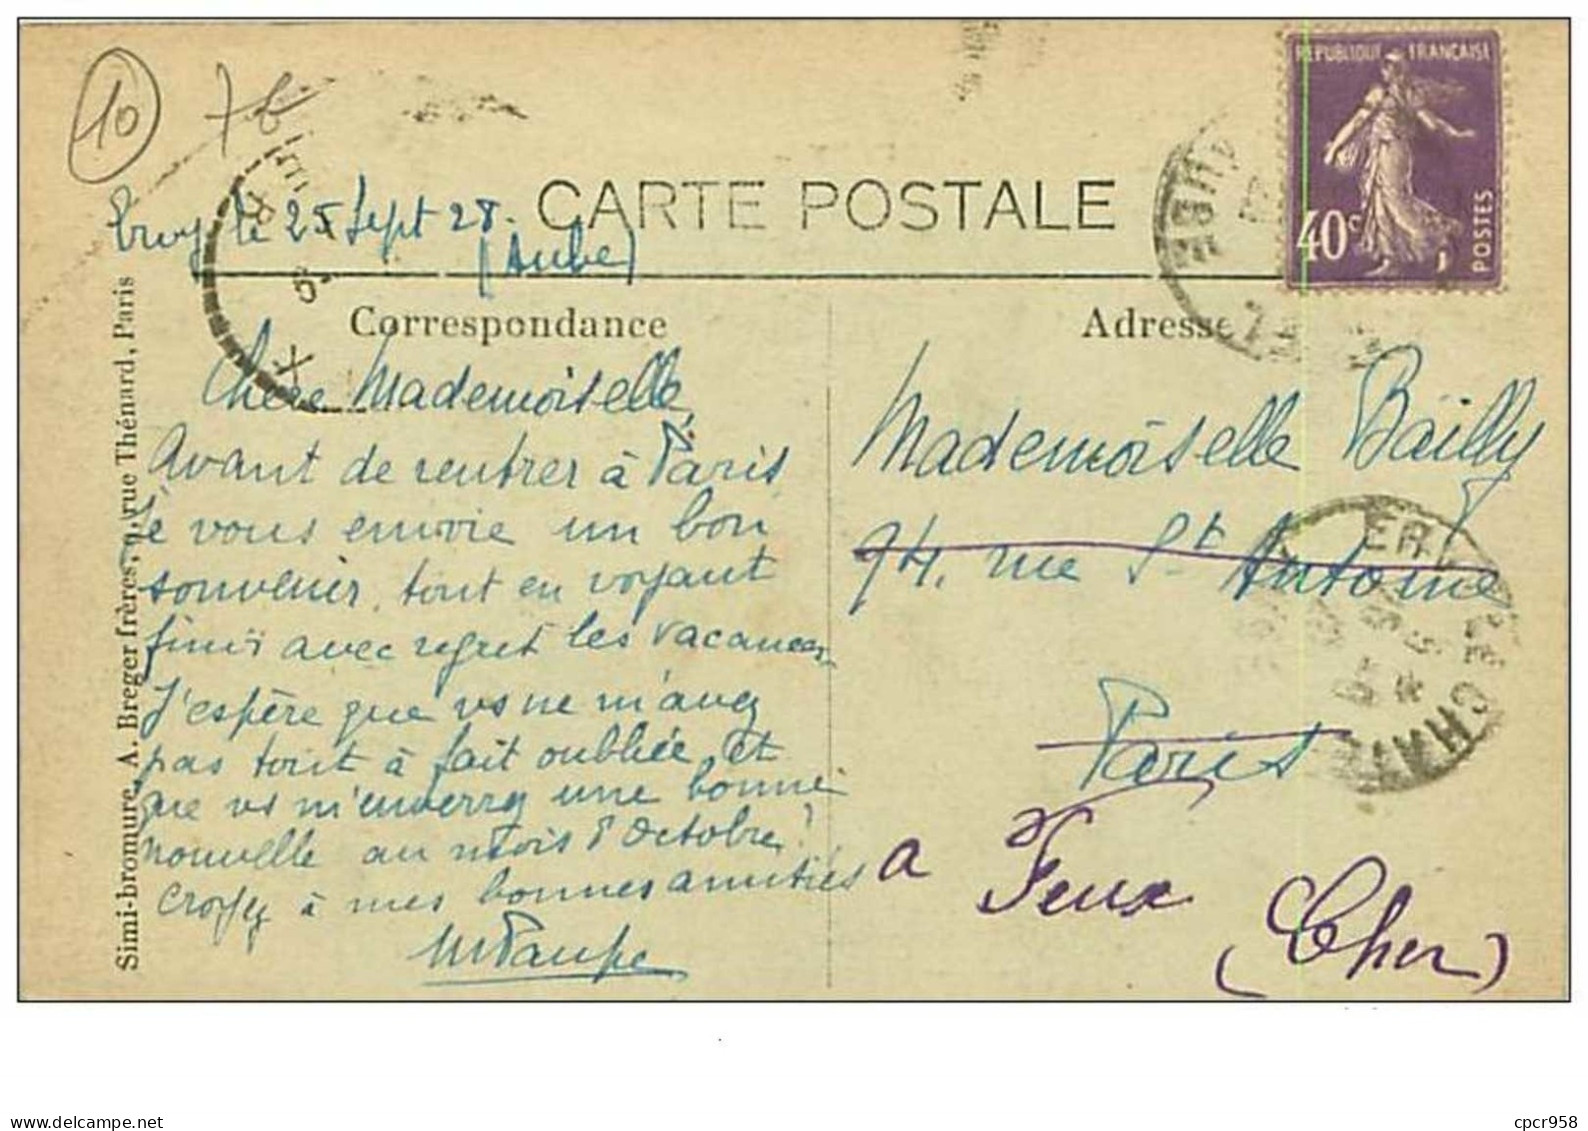 10
CARTE POSTALE
REPUBLIQUE FRANÇAISE
40c
POSTES
le 25 Sept 28.
(Aube)
Correspondance
Adresse
Simi-bromure, A. Breger frères, rue Thénard, Paris
Chère Mademoiselle,
Avant de rentrer à Paris
je vous envoie un bon
souvenir, tout en voyant
finir avec regret les vacances.
J'espère que vs ne m'avez
pas tout à fait oubliée et
que vs m'enverrez une bonne
nouvelle au mois d'Octobre!
Croyez à mes bonnes amitiés
Mademoiselle Bailly
94, rue St Antoine
Paris
a Feux
(Cher)
cpcr958